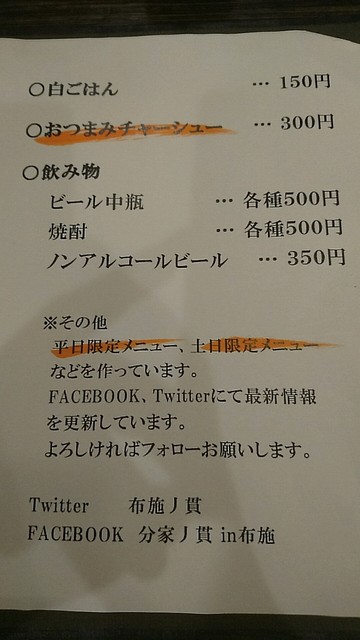 ○白ごはん … 150円
○おつまみチャーシュー … 300円
○飲み物
ビール中瓶 … 各種500円
焼酎 … 各種500円
ノンアルコールビール … 350円
※その他
平日限定メニュー、土日限定メニュー
などを作っています。
FACEBOOK、Twitterにて最新情報
を更新しています。
よろしければフォローお願いします。
Twitter 布施丿貫
FACEBOOK 分家丿貫 in布施